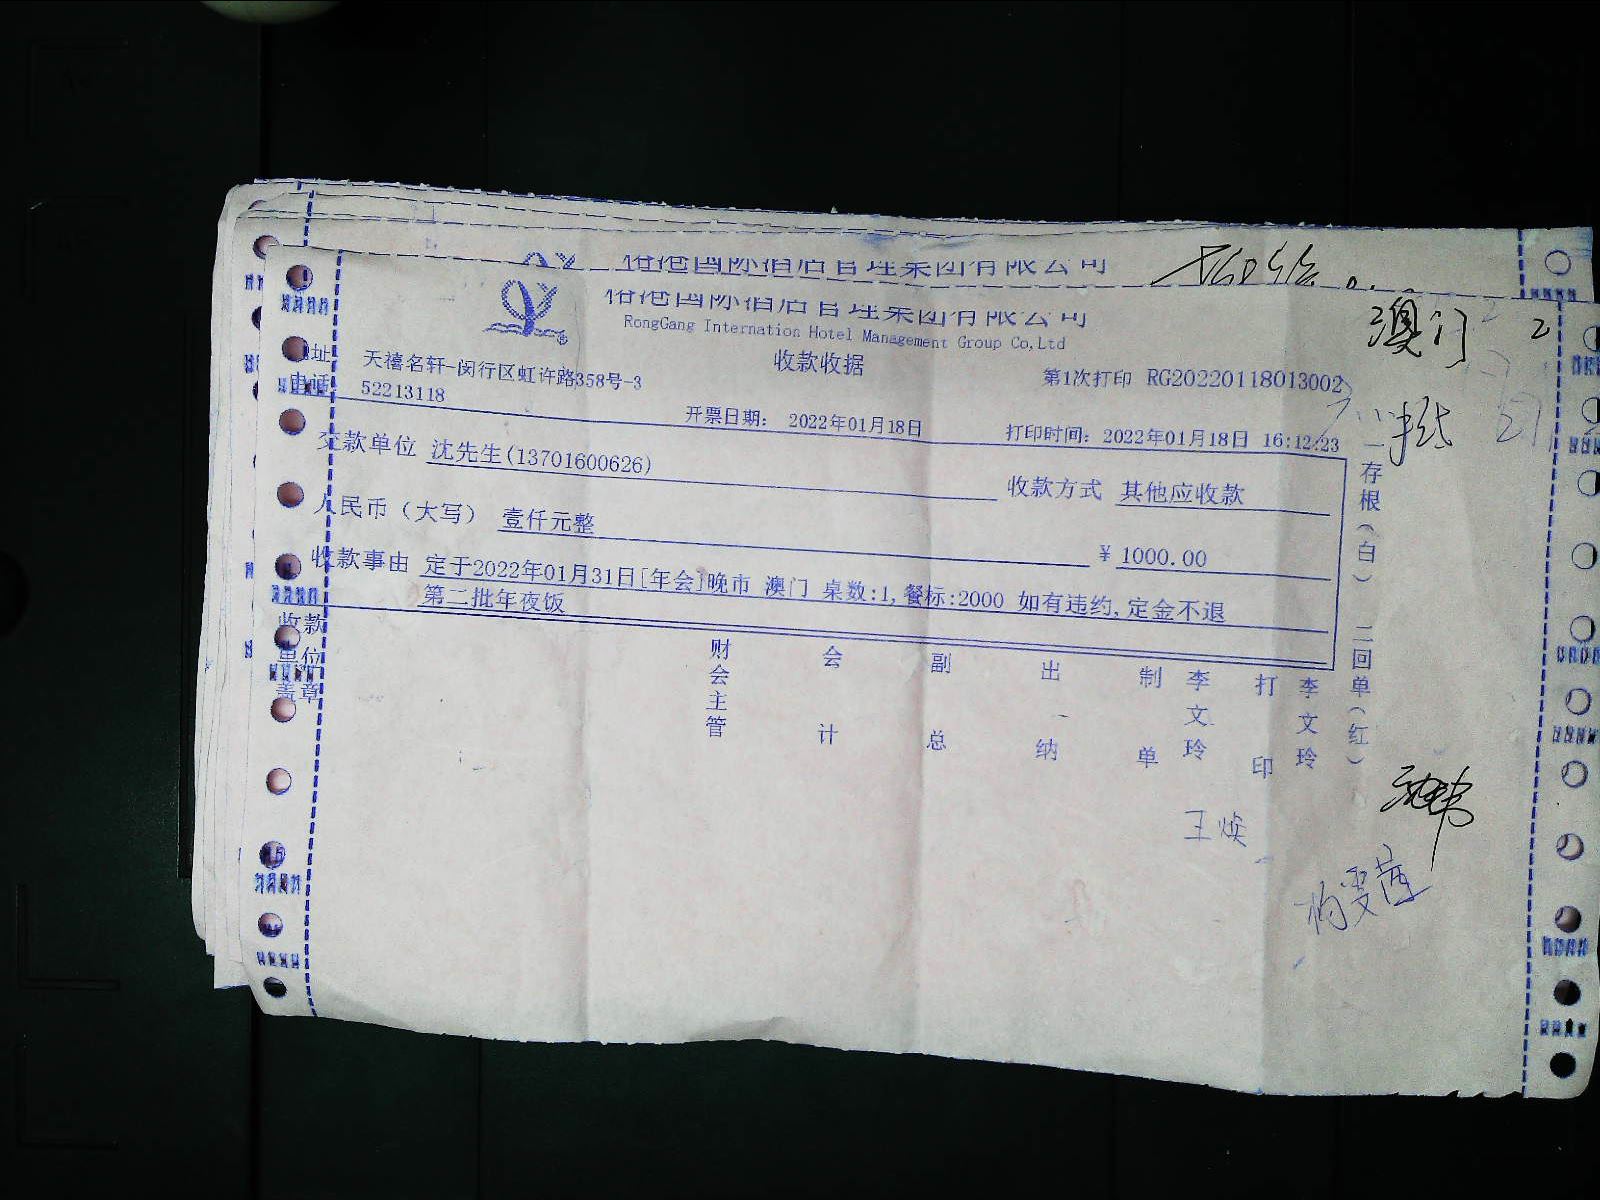 裕港国际酒店管理集团有限公司
裕港国际酒店管理集团有限公司
RongGang Internation Hotel Management Group Co,Ltd
收款收据
地址 天禧名轩-闵行区虹许路358号-3
第1次打印 RG20220118013002
电话 52213118
开票日期： 2022年01月18日
打印时间：2022年01月18日 16:12:23
交款单位 沈先生(13701600626)
收款方式 其他应收款
人民币（大写） 壹仟元整
¥ 1000.00
收款事由 定于2022年01月31日[年会]晚市 澳门 桌数:1,餐标:2000 如有违约,定金不退
第二批年夜饭
收款单位盖章
财会主管
会计
副总
出纳
制单 李文玲
打印 李文玲
一存根（白） 二回单（红）
澳门 2
王焕